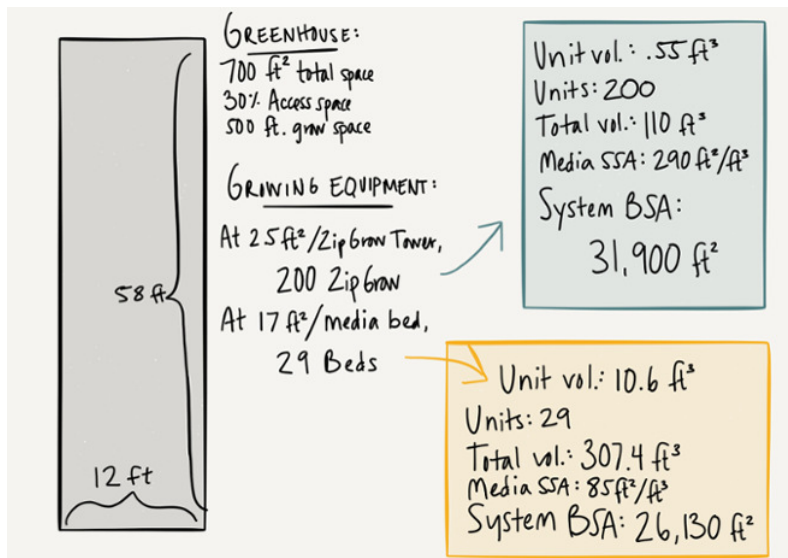 GREENHOUSE:
700 ft² total space
30% Access space
500 ft. grow space
GROWING EQUIPMENT:
At 2.5 ft²/ZipGrow Tower,
200 ZipGrow
At 17 ft²/media bed,
29 Beds
58 ft
12 ft
Unit vol.: .55 ft³
Units: 200
Total vol.: 110 ft³
Media SSA: 290 ft²/ft³
System BSA:
31,900 ft²
Unit vol.: 10.6 ft³
Units: 29
Total vol.: 307.4 ft³
Media SSA: 85 ft²/ft³
System BSA: 26,130 ft²